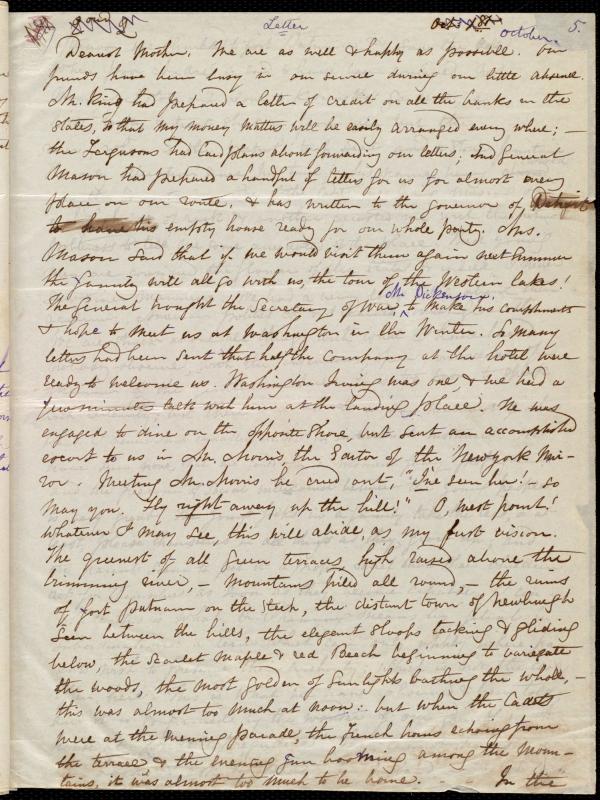 Letter
October. 5.
Dearest Mother, We are as well & happy as possible. Our
friends have been busy in our service during our little absence.
Mr. King had prepared a letter of credit on all the banks in the
States, so that my money matters will be easily arranged every where; —
the Fergusons had laid plans about forwarding our letters; and General
Mason had prepared a handful of letters for us for almost every
place on our route, & has written to the governor of Detroit
to have his empty house ready for our whole party. Mrs.
Mason said that if we would visit them again next Summer
the family will all go with us, the tour of the Western lakes!
The General brought the Secretary of War, Mr Dickenson, to make his compliments
& hope to meet us at Washington in the Winter. So many
letters had been sent that half the company at the hotel were
ready to welcome us. Washington Irving was one, & we had a
few minutes talk with him at the landing place. He was
engaged to dine on the opposite shore, but sent an accomplished
escort to us in Mr. Morris the Editor of the New york Mir-
ror. Meeting Mr. Morris he cried out, "I've seen her: — so
may you. Fly right away up the hill!" O, West point!
Whatever I may see, this will abide, as my first vision.
The greenest of all green terraces, high raised above the
brimming river, — mountains piled all round, — the ruins
of Fort Putnam on the steep, the distant town of Newburgh
seen between the hills, the elegant sloops tacking & gliding
below, the scarlet maple & red Beech beginning to variegate
the woods, the most golden of sunlights bathing the whole, —
this was almost too much at noon: but when the Cadets
were at the evening parade, the French horns echoing from
the terrace & the evening gun booming among the moun-
tains, it was almost too much to be borne. — In the